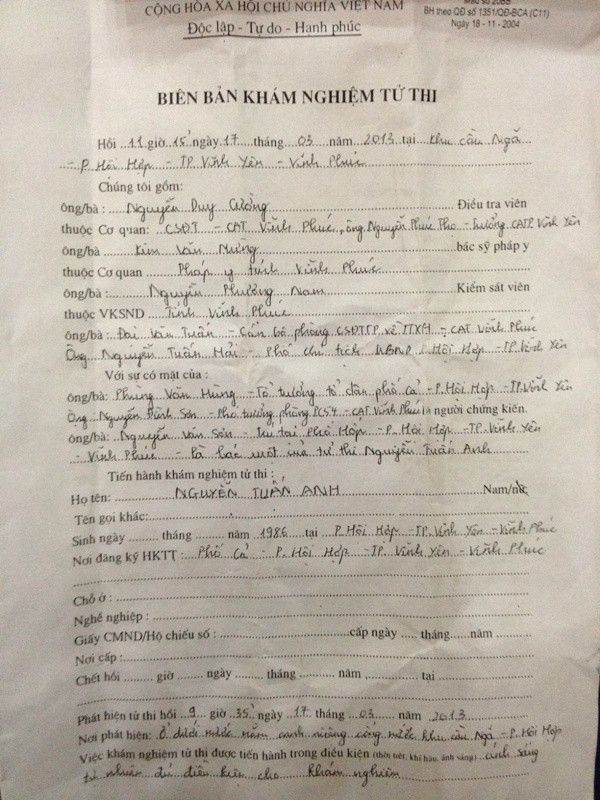 CỘNG HÒA XÃ HỘI CHỦ NGHĨA VIỆT NAM
Độc lập - Tự do - Hạnh phúc
Mẫu số 20BB
BH theo QĐ số 1351/QĐ-BCA (C11)
Ngày 18 - 11 - 2004
BIÊN BẢN KHÁM NGHIỆM TỬ THI
Hồi ..11..giờ..15'..ngày..17....tháng...03...năm..2013..tại..Khu cầu Ngã...
- P. Hội Hợp - TP Vĩnh Yên - Vĩnh Phúc
Chúng tôi gồm:
ông/bà : Nguyễn Duy Cường Điều tra viên
thuộc Cơ quan: CSĐT - CAT Vĩnh Phúc, ông Nguyễn Phúc Thọ - Trưởng CATP Vĩnh Yên
ông/bà Kim Văn bác sỹ pháp y
thuộc Cơ quan Pháp y tỉnh Vĩnh Phúc
ông/bà : Nguyễn Phương Nam Kiểm sát viên
thuộc VKSND Tỉnh Vĩnh Phúc
ông/bà : Đai Văn Tuân - Cán bộ phòng CSĐTTP về TTXH - CAT Vĩnh Phúc
Ông Nguyễn Tuấn Hải - Phó chủ tịch UBND P. Hội Hợp - TP. Vĩnh Yên
Với sự có mặt của :
ông/bà: Phùng Văn Hùng - Tổ trưởng tổ dân phố cả - P. Hội Hợp - TP. Vĩnh Yên
Ông Nguyễn Đình Sơn - Phó trưởng phòng PC54 - CAT Vĩnh Phúc là người chứng kiến.
ông/bà: Nguyễn Văn Sơn - trú tại Phố Hợp - P. Hội Hợp - TP. Vĩnh Yên
- Vĩnh Phúc - là bác ruột của tử thi Nguyễn Tuấn Anh
Tiến hành khám nghiệm tử thi :
Họ tên: NGUYỄN TUẤN ANH Nam/nữ
Tên gọi khác:
Sinh ngày ......... tháng ......... năm 1986 tại P. Hội Hợp - TP. Vĩnh Yên - Vĩnh Phúc
Nơi đăng ký HKTT : Phố Cả - P. Hội Hợp - TP Vĩnh Yên - Vĩnh Phúc
Chỗ ở :
Nghề nghiệp :
Giấy CMND/Hộ chiếu số : ..........cấp ngày ..... tháng......năm
Nơi cấp:
Chết hồi ........ giờ ........ ngày ........ tháng ......... năm .......... tại
Phát hiện tử thi hồi 9 giờ 35' ngày 17 tháng 03 năm 2013
Nơi phát hiện: Ở dưới mước nằm cạnh cống nước khu cầu Ngã - P. Hội Hợp
Việc khám nghiệm tử thi được tiến hành trong điều kiện (thời tiết, khí hậu, ánh sáng) ánh sáng
tự nhiên đủ điều kiện cho khám nghiệm